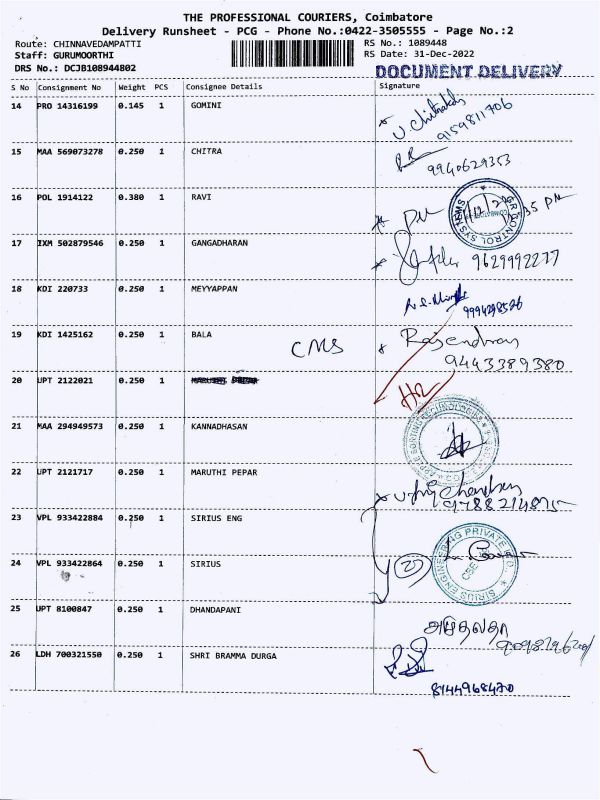 THE PROFESSIONAL COURIERS, Coimbatore
Delivery Runsheet - PCG - Phone No.:0422-3505555 - Page No.:2
Route: CHINNAVEDAMPATTI RS No.: 1089448
Staff: GURUMOORTHI RS Date: 31-Dec-2022
DRS No.: DCJB108944802 DOCUMENT DELIVERY
S No Consignment No Weight PCS Consignee Details Signature
14 PRO 14316199 0.145 1 GOMINI
9159811706
15 MAA 569073278 0.250 1 CHITRA
9940629353
16 POL 1914122 0.380 1 RAVI
GR CONTROL SYSTEMS
17 IXM 502879546 0.250 1 GANGADHARAN
9629992277
18 KDI 220733 0.250 1 MEYYAPPAN
19 KDI 1425162 0.250 1 BALA
CMS Rajendran
9443389380
20 UPT 2122021 0.250 1
21 MAA 294949573 0.250 1 KANNADHASAN
22 UPT 2121717 0.250 1 MARUTHI PEPAR
23 VPL 933422884 0.250 1 SIRIUS ENG
24 VPL 933422864 0.250 1 SIRIUS
SIRIUS ENGINEERING PRIVATE
CBE
25 UPT 8100847 0.250 1 DHANDAPANI
26 LDH 700321550 0.250 1 SHRI BRAMMA DURGA
8144968470